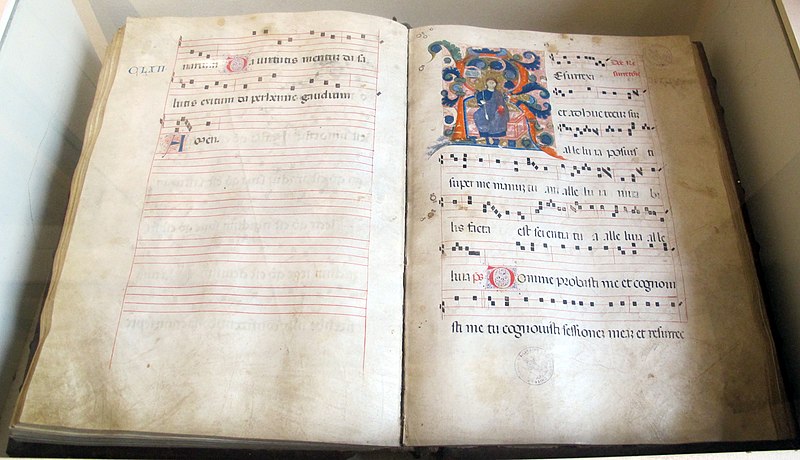 CLXII
O uirtutis di sa
lutis exitum gaudium
A men.
R Esurrexi
et adhuc tecum sum
alle lu ia posuis ti
super me manum tu am alle lu ia mira bi
lis facta est sci entia tu a alle luia alle
luia ps D omine probasti me et cognoui
sti me tu cognouisti sessionem meam et resurrec